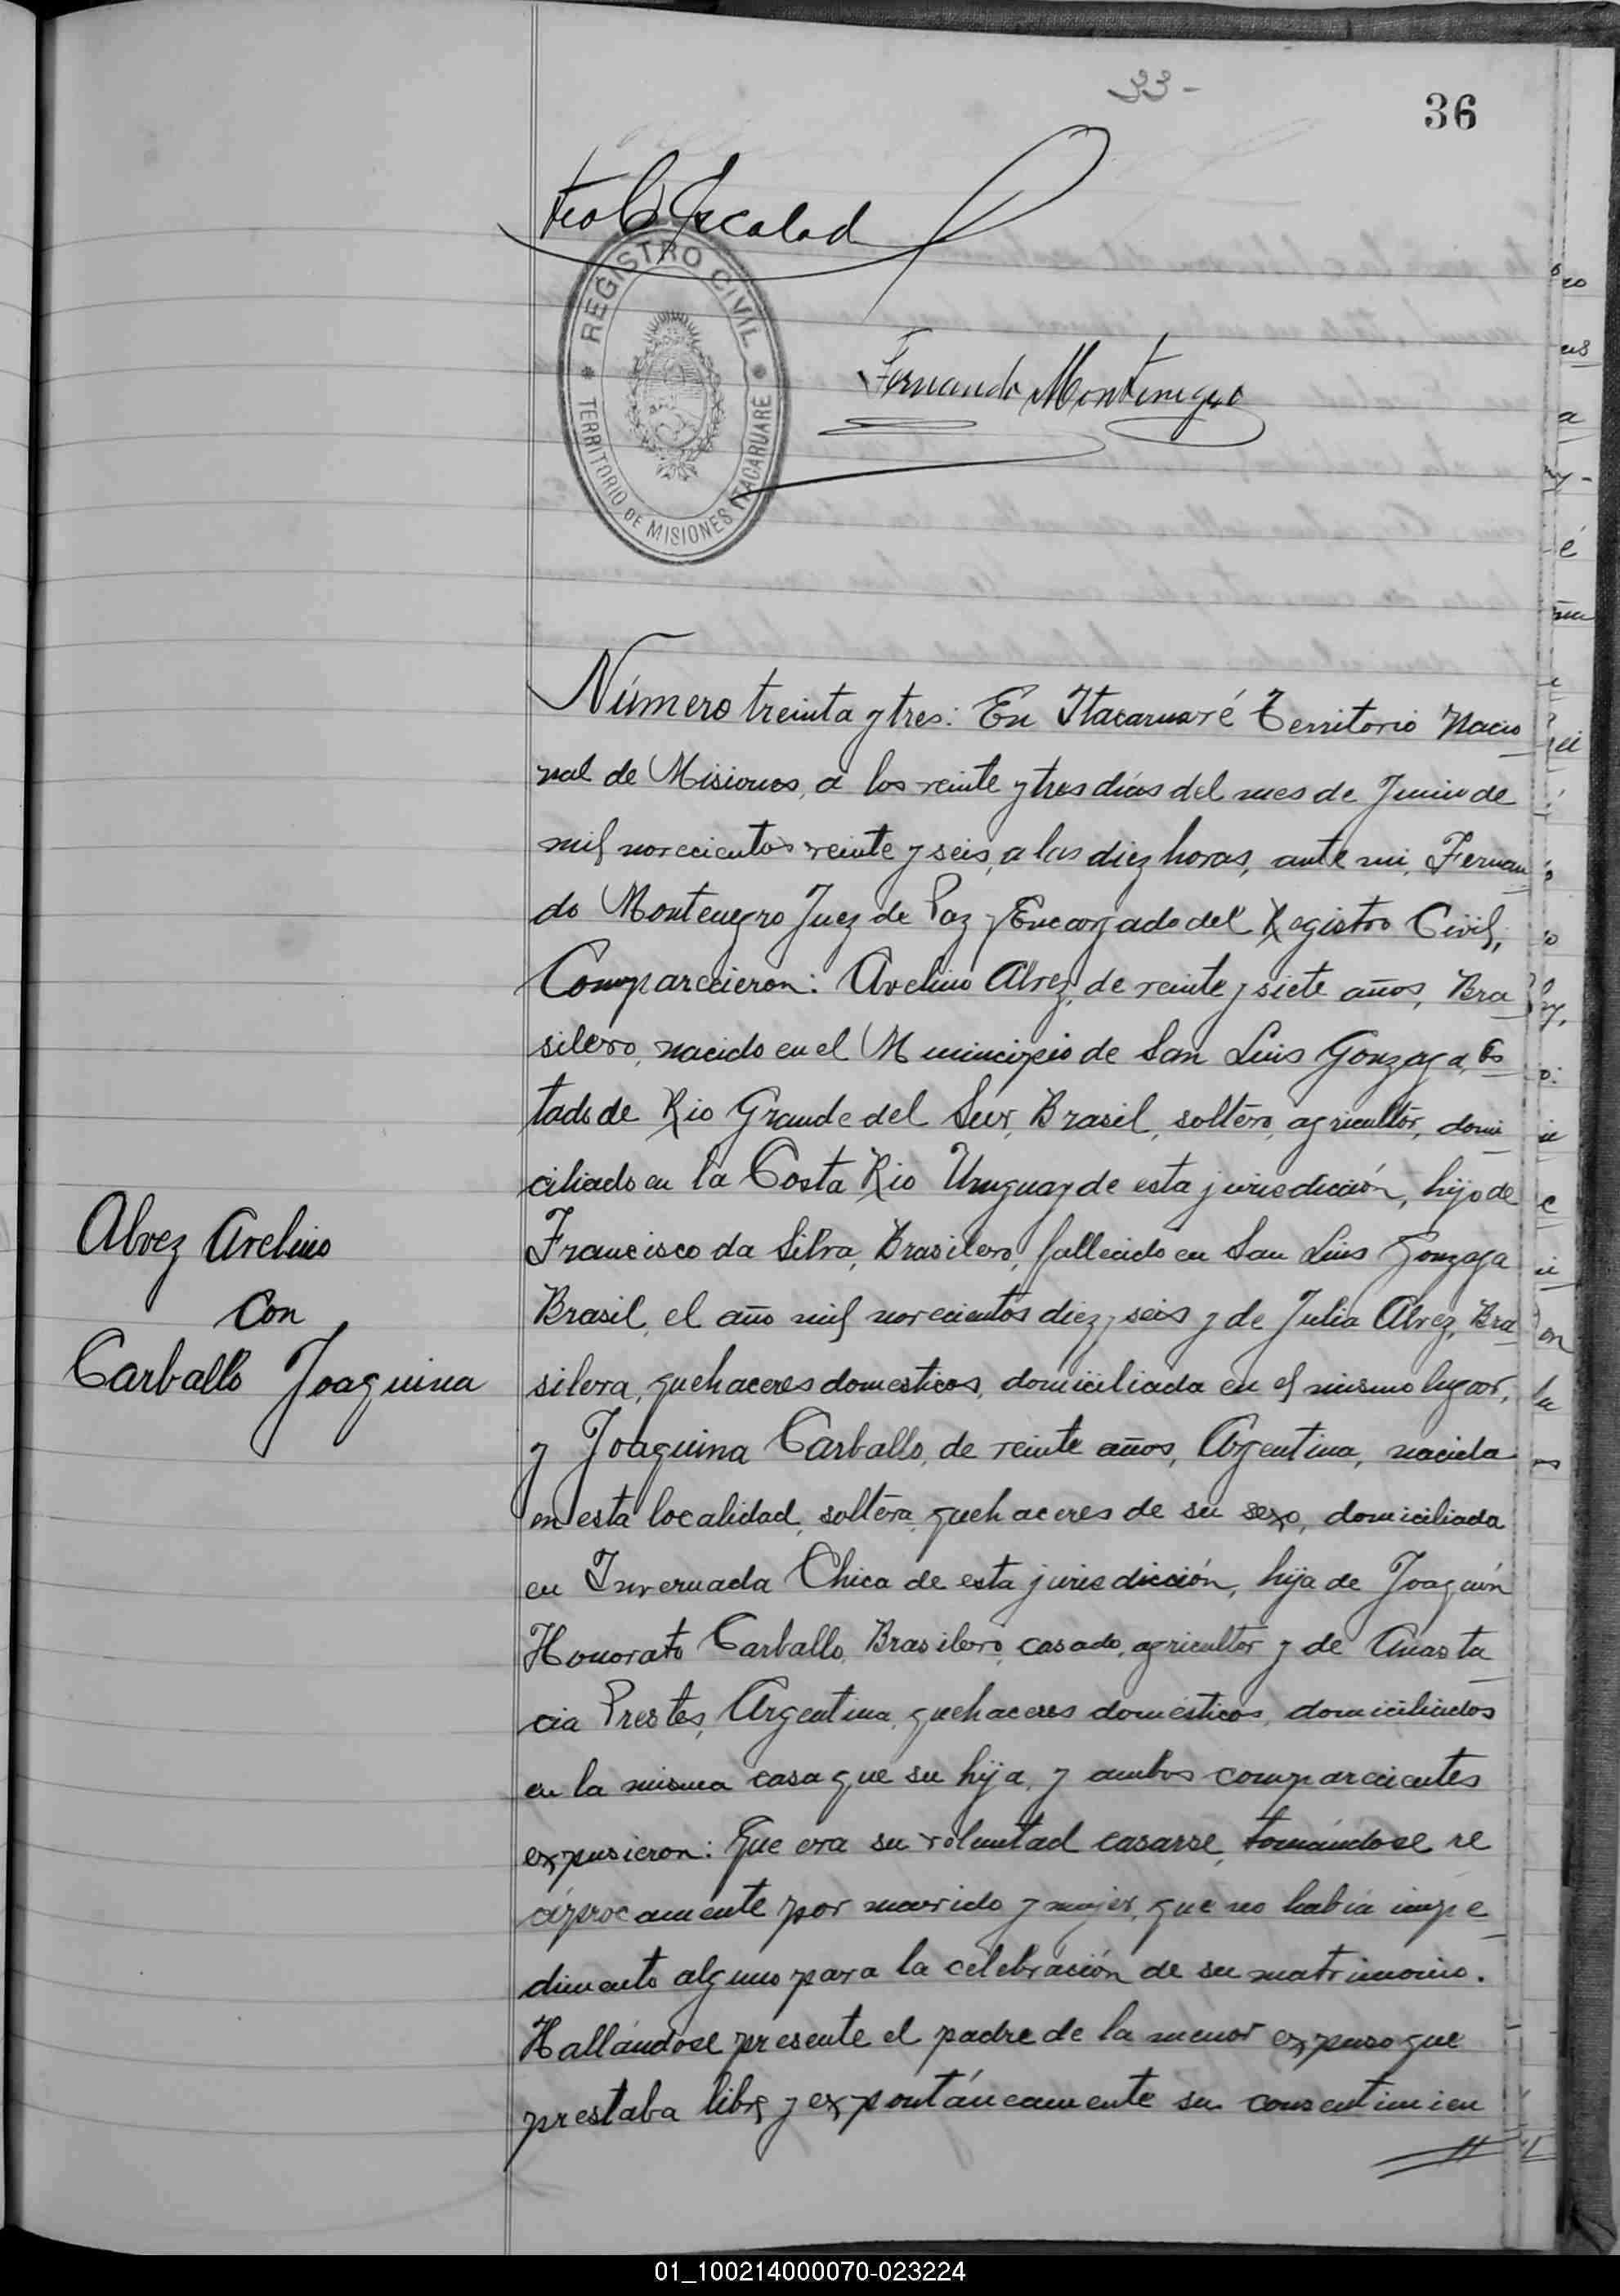 33-
36
REGISTRO CIVIL
TERRITORIO DE MISIONES ITACARUARÉ
Fernando Montenegro
Número treinta y tres: En Itacaruaré Territorio Nacio
nal de Misiones, a los veinte y tres días del mes de Junio de
mil novecientos veinte y seis, a las diez horas, ante mi, Fernan
do Montenegro Juez de Paz y Encargado del Registro Civil,
Comparecieron: Avelino Alvez, de veinte y siete años, Bra
silero, nacido en el Municipio de San Luis Gonzaga, Es
tado de Rio Grande del Sur, Brasil, soltero, agricultor, domi
ciliado en la Costa Rio Uruguay de esta jurisdicción, hijo de
Alvez Avelino
con
Carballo Joaquina
Francisco da Silva, Brasilero, fallecido en San Luis Gonzaga
Brasil, el año mil novecientos diez y seis y de Julia Alvez, Bra
silera, quehaceres domesticos, domiciliada en el mismo lugar,
y Joaquina Carballo, de veinte años, Argentina, nacida
en esta localidad, soltera, quehaceres de su sexo, domiciliada
en Invernada Chica de esta jurisdicción, hija de Joaquín
Honorato Carballo, Brasilero, casado, agricultor y de Anasta
cia Prestes, Argentina, quehaceres domésticos, domiciliados
en la misma casa que su hija, y ambos comparecientes
expusieron: Que era su voluntad casarse, tomándose re
cíprocamente por marido y mujer, que no había impe
dimento alguno para la celebración de su matrimonio.
Hallándose presente el padre de la menor expuso que
prestaba libre y expontáneamente su consentimien
01_100214000070-023224